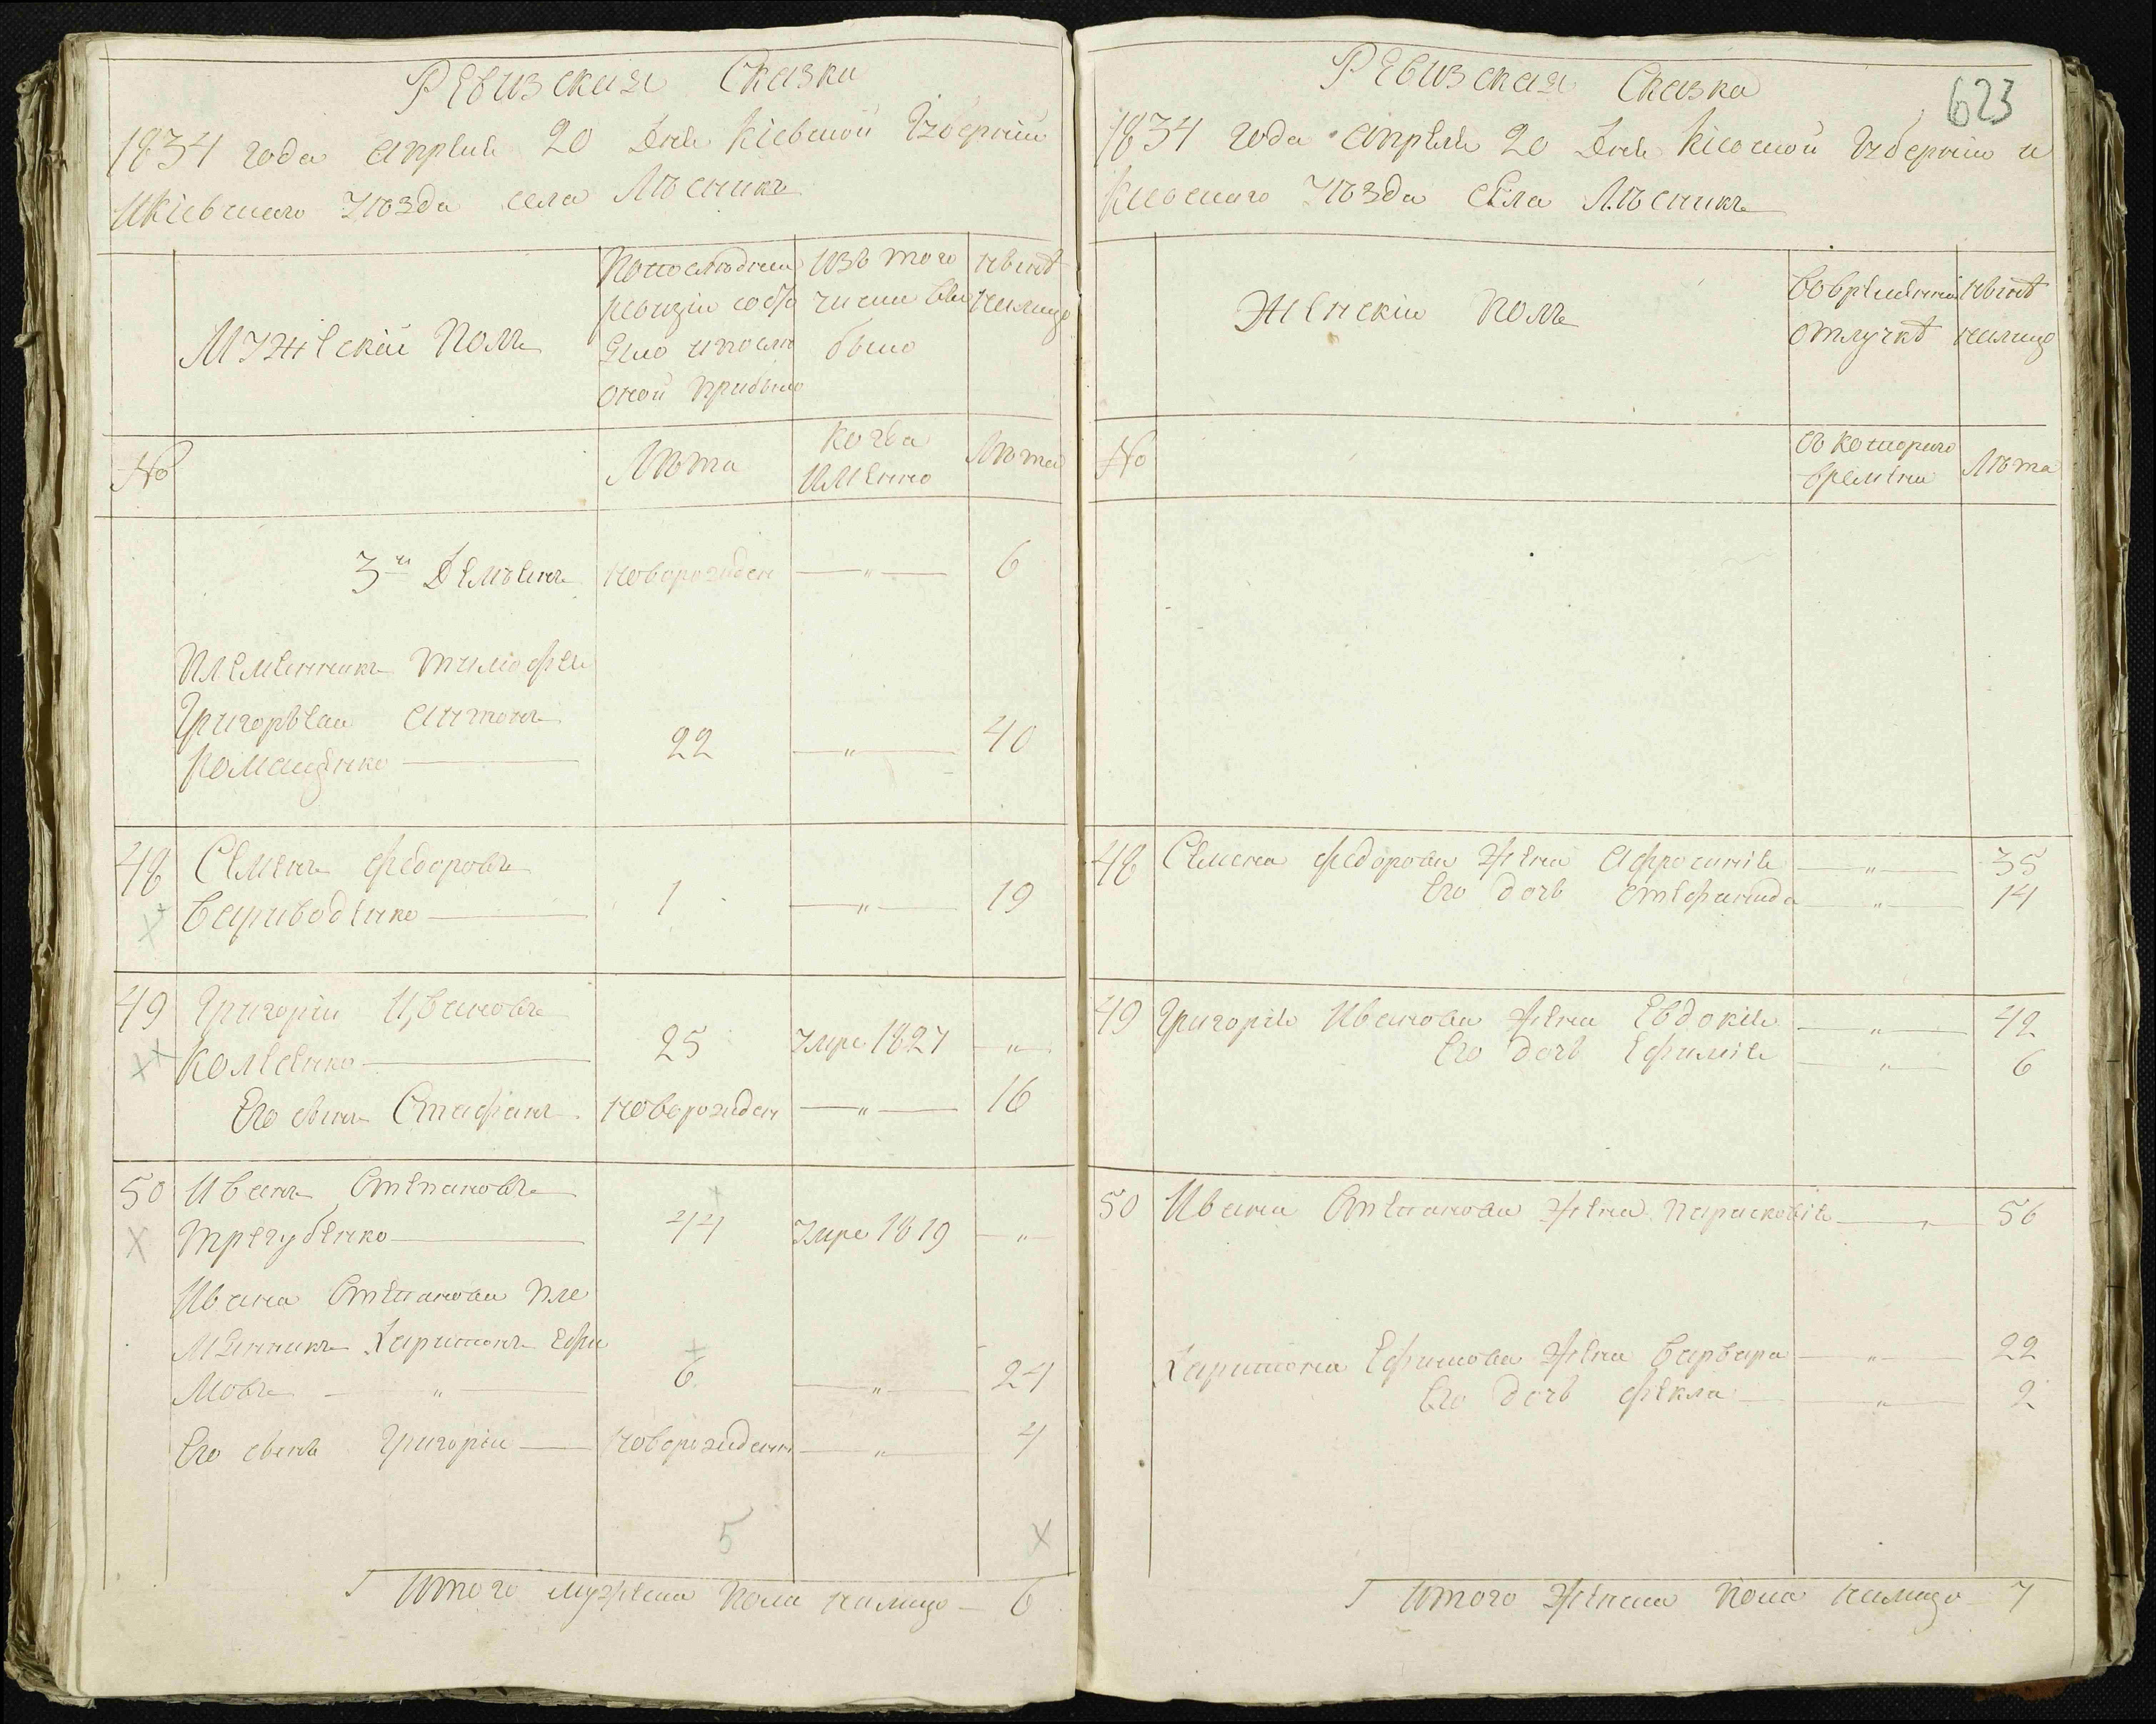 Ревизская Сказка
1834 года апреля 20 дня Кіевской Губерніи
и Кіевского Уѣзда села Лѣсникъ
Мужескій полъ
По последней
ревизіи состо
яло и после
оной прибыло
Изъ того
числа выбы
было
Ныне
налицо
№
Лѣта
Когда
именно
Лѣта
3й Демьянъ новорожден — " — 6
Племенникъ Тимофей
Григорьевъ
Ромащенко — 22 — " — 40
48 Семенъ Федоровъ
Вариводенко — 1 — " — 19
49 Григорій Ивановъ
Колеенко — 25 Умре 1827 — " —
Его сынъ Стефанъ новорожден — " — 16
50 Иванъ Степановъ
Трегубенко — 44 Умре 1819 — " —
Ивана Степанова пле
менникъ Харитонъ Ефи
мовъ — " — 6 — " — 24
Его сынъ Григорій — новорожденн — " — 4
5 X
Итого мужеска пола налицо — 6
623
Ревизская Сказка
1834 года апреля 20 дня Кіевской Губерніи и
Кіевского Уѣзда села Лѣсникъ
Женскій полъ
Во временной
отлучке
Ныне
налицо
№
Съ которого
времени
Лѣта
48 Семена Федорова жена Афросинія — " — 35
Его дочь Степанида — " — 14
49 Григорія Иванова жена Евдокія — " — 42
Его дочь Ефимія — " — 6
50 Ивана Степанова жена Парасковія — " — 56
Харитона Ефимова жена Варвара — " — 22
Его дочь Фекла — " — 2
Итого женска пола налицо — 7